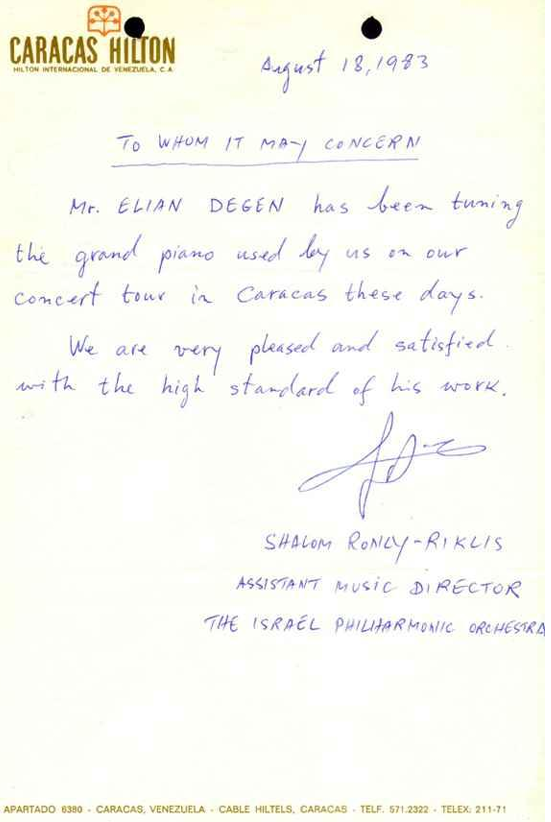 CARACAS HILTON
HILTON INTERNACIONAL DE VENEZUELA, C.A.
August 18, 1983
TO WHOM IT MAY CONCERN
Mr. ELIAN DEGEN has been tuning
the grand piano used by us on our
concert tour in Caracas these days.
We are very pleased and satisfied
with the high standard of his work.
SHALOM RONLY-RIKLIS
ASSISTANT MUSIC DIRECTOR
THE ISRAEL PHILHARMONIC ORCHESTRA
APARTADO 6380 - CARACAS, VENEZUELA - CABLE HILTELS, CARACAS - TELF. 571.2322 - TELEX: 211-71